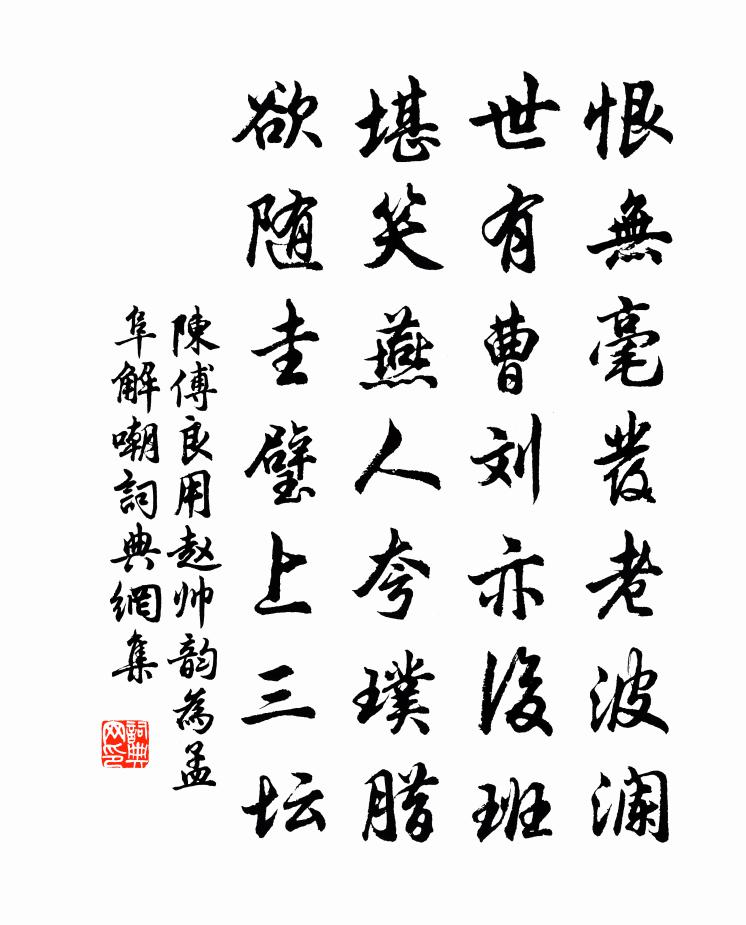 恨無毫發老波澜
世有曹刘亦後班
堪笑燕人夸璞腊
欲随圭璧上三坛
陳傅良用赵帅韵為孟
阜解嘲詞典網集
詞典网印